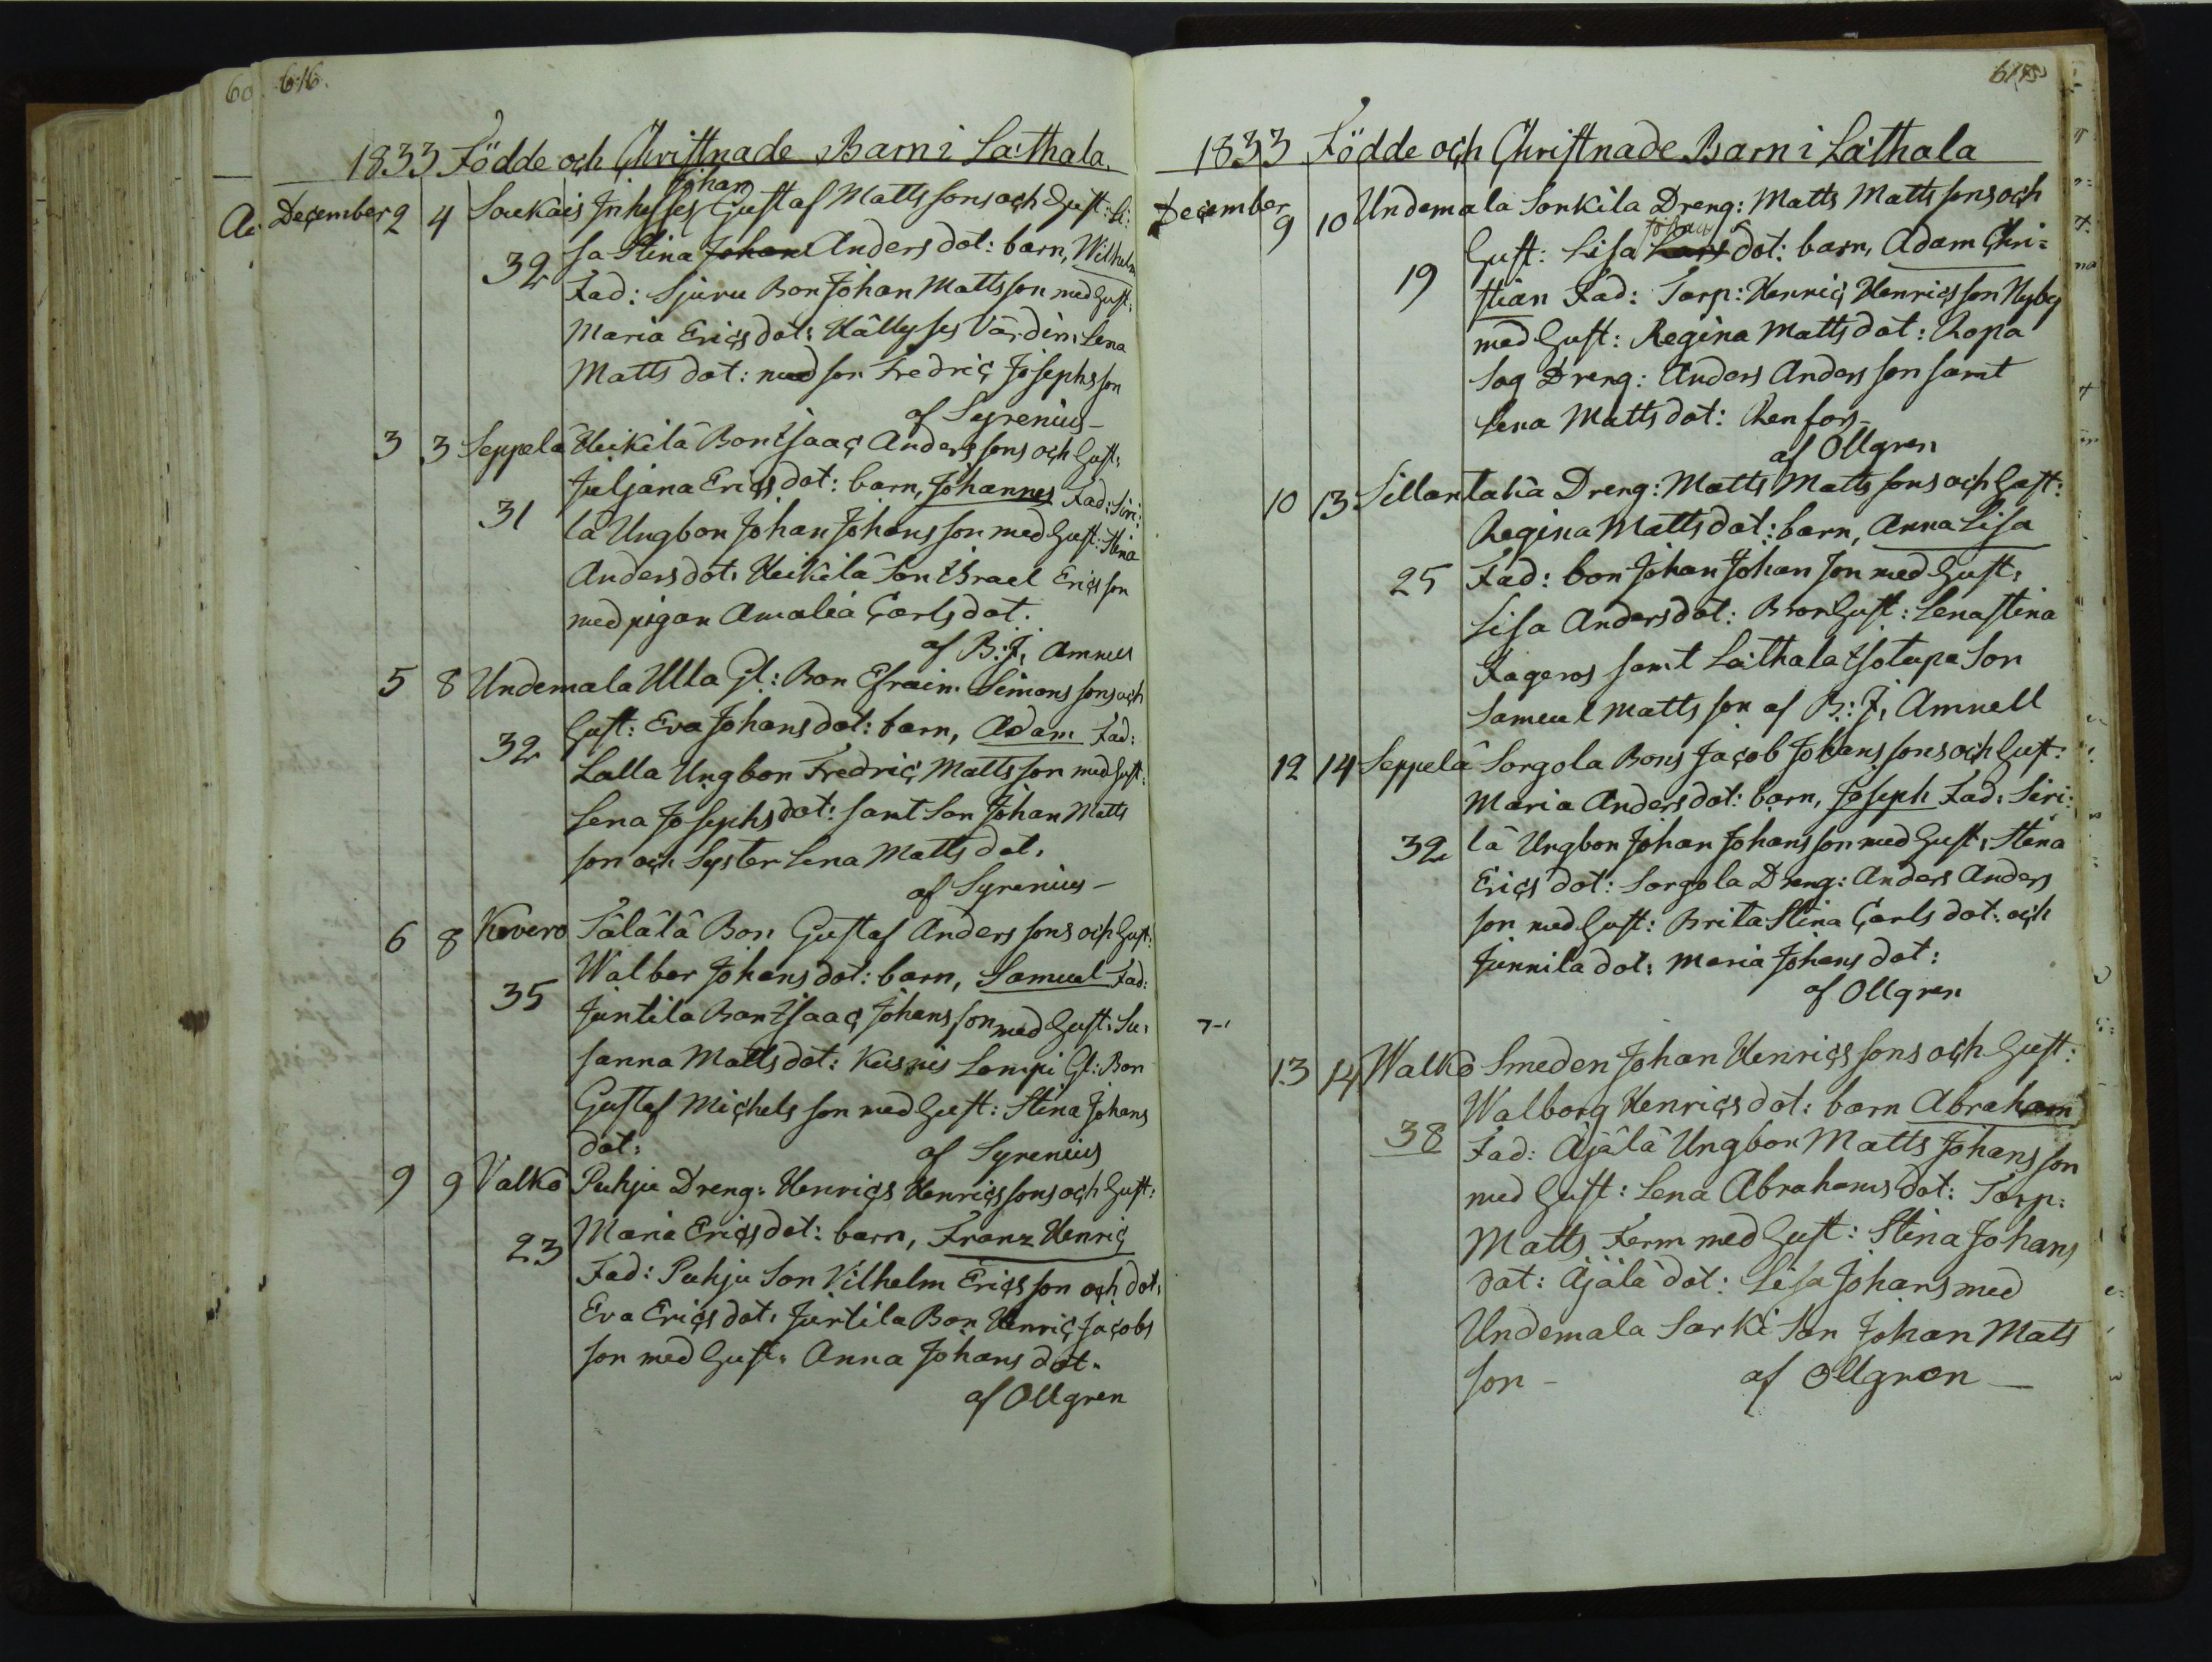 616.
1833 Födde och Christnade Barn i La:thala.
Johan
December 2 4 Soukais Inhyses Gustaf Matts sons och Hust: Li:
sa Stina Johan Anders dot: barn, Wilhelm
32
Fad: Sjuru Bon Johan Matts son med Hust:
Maria Erics dot: Källyses Värdin: Lena
Matts dot: med son Fredric Josephs son
af Syrenius-
3 3 Seppelä Heikilä Bon Isaac Anders sons och Hust:
Juljana Erics dot: barn, Johannes Fad: Siri:
31
lä Ungbon Johan Johans son med Hust: Stina
Anders dot: Heikilä Son Israel Erics son
med pigan Amalia Carls dot:
af B: J: Amnell
5 8 Undemala Ulla Gl: Bon Efraim Simons sons och
Hust: Eva Johans dot: barn, Adam Fad:
32
Lalla Ungbon Fredric Matts son med Hust:
Lena Josephs dot: samt Son Johan Matts
son och Syster Lena Matts dot.
af Syrenius-
6 8 Kovero Tälälä Bon Gustaf Anders sons och Hust:
Walbor Johans dot: barn, Samuel Fad:
35
Juntila Bon Isaac Johans son med Hust: Su:
sanna Matts dot: Kusnis Lampi Gl: Bon
Gustaf Michels son med Hust: Stina Johans
dot: af Syrenius
9 9 Valko Puhju Dreng: Henrics Henrics sons och Hust:
Maria Erics dot: barn, Franz Henric
23
Fad: Puhju Son Vilhelm Erics son och dot:
Eva Erics dot: Juntila Bon Henric Jacobs
son med Hust: Anna Johans dot:
af Ollgren
1833 Födde och Christnade Barn i La:thala
December
9 10 Undemala Sonkila Dreng: Matts Matts sons och
Hust: Lisa Lars dot: barn, Adam Chri=
19
stian Fad: Torp: Henric Henrics son Nyby
med Hust: Regina Matts dot: Ropa
Sag Dreng: Anders Anders son samt
Lena Matts dot: Renfors-
af Ollgren
10 13 Sillantaka Dreng: Matts Matts sons och Hust:
Regina Matts dot: barn, Anna Lisa
25
Fad: bon Johan Johan son med Hust:
Lisa Anders dot: Bron Hust: Lena Stina
Fageros samt La:thala Isotupa Son
Samuel Matts son af B: J: Amnell
12 14 Seppelä Sorgola Bons Jacob Johans sons och Hust:
Maria Anders dot: barn, Joseph Fad: Siri:
32
lä Ungbon Johan Johans son med Hust: Stina
Erics dot: Sorgola Dreng: Anders Anders
son med Hust: Brita Stina Carls dot: och
Junnila dot: Maria Johans dot:
af Ollgren
13 14 Walko Smeden Johan Henrics sons och Hust:
Walborg Henrics dot: barn Abraham
38
Fad: Äjälä Ungbon Matts Johans son
med Hust: Lena Abrahams dot: Torp:
Matts Ferm med Hust: Stina Johans
dot: Äjälä dot: Lisa Johans med
Undemala Sarki Son Johan Mats
son- af Ollgren-